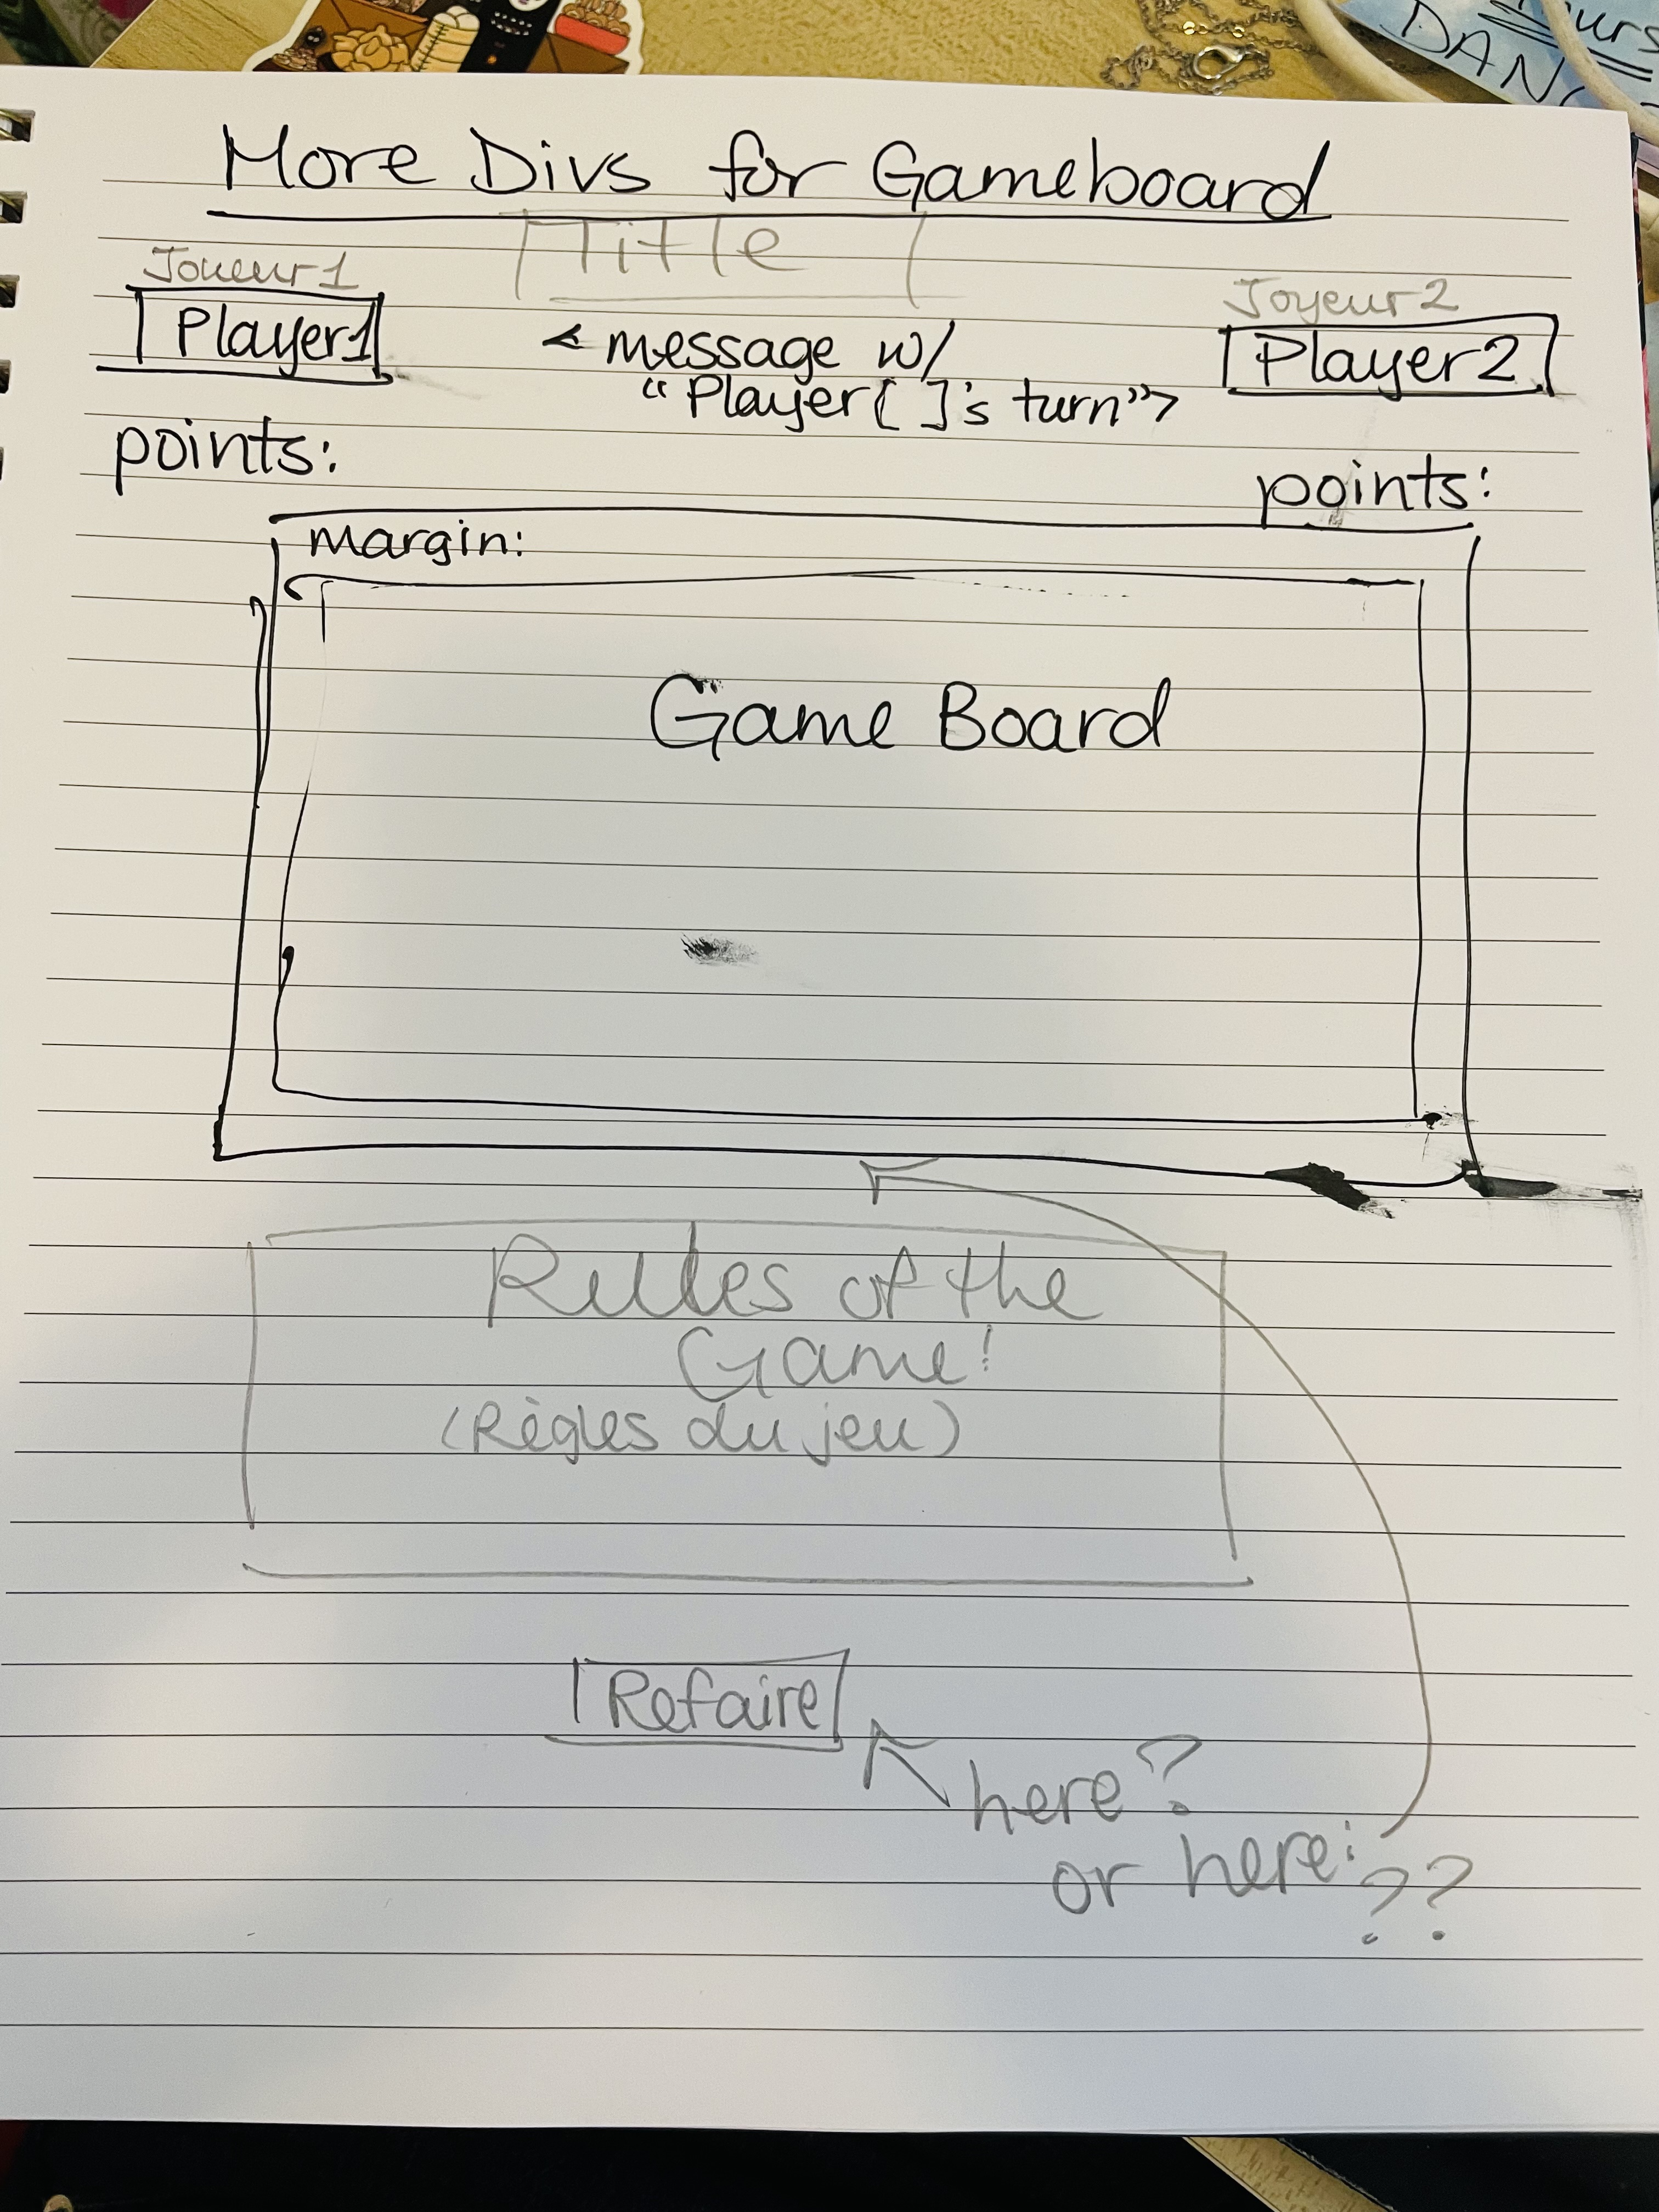 More Divs for Gameboard
Title
Joueur 1
Player1
< message w/
"Player[ ]'s turn">
Joyeur 2
Player2
points:
points:
margin:
Game Board
Rules of the
Game!
(Règles du jeu)
Refaire
here?
or here:??
DAN